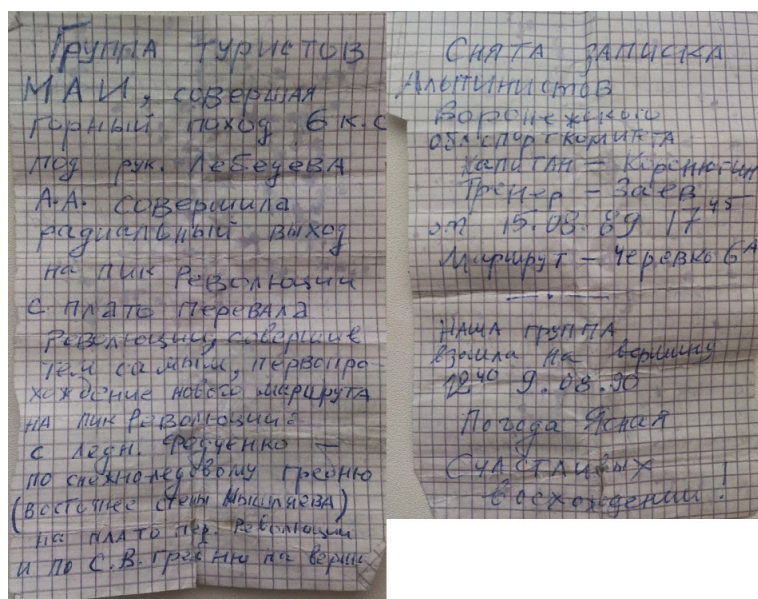 Группа туристов
МАИ, совершая
горный поход 6 к.с
под рук. Лебедева
А.А. совершила
радиальный выход
на пик Революции
с плато перевала
Революции, совершив
тем самым, первопро-
хождение нового маршрута
на пик Революции:
с ледн. Федченко —
по снежноледовому гребню
(восточнее стены Мышляева)
на плато пер. Революции
и по С.В. гребню на верши
Снята записка
Альпинистов
Воронежского
облспорткомитета
Капитан — Коренюгин
Тренер — Заев
от 15.08.89 17 45
Маршрут — Черевко 6А
Наша группа
взошла на вершину
12 40 9.08.90
Погода Ясная
Счастливых
восхождений!